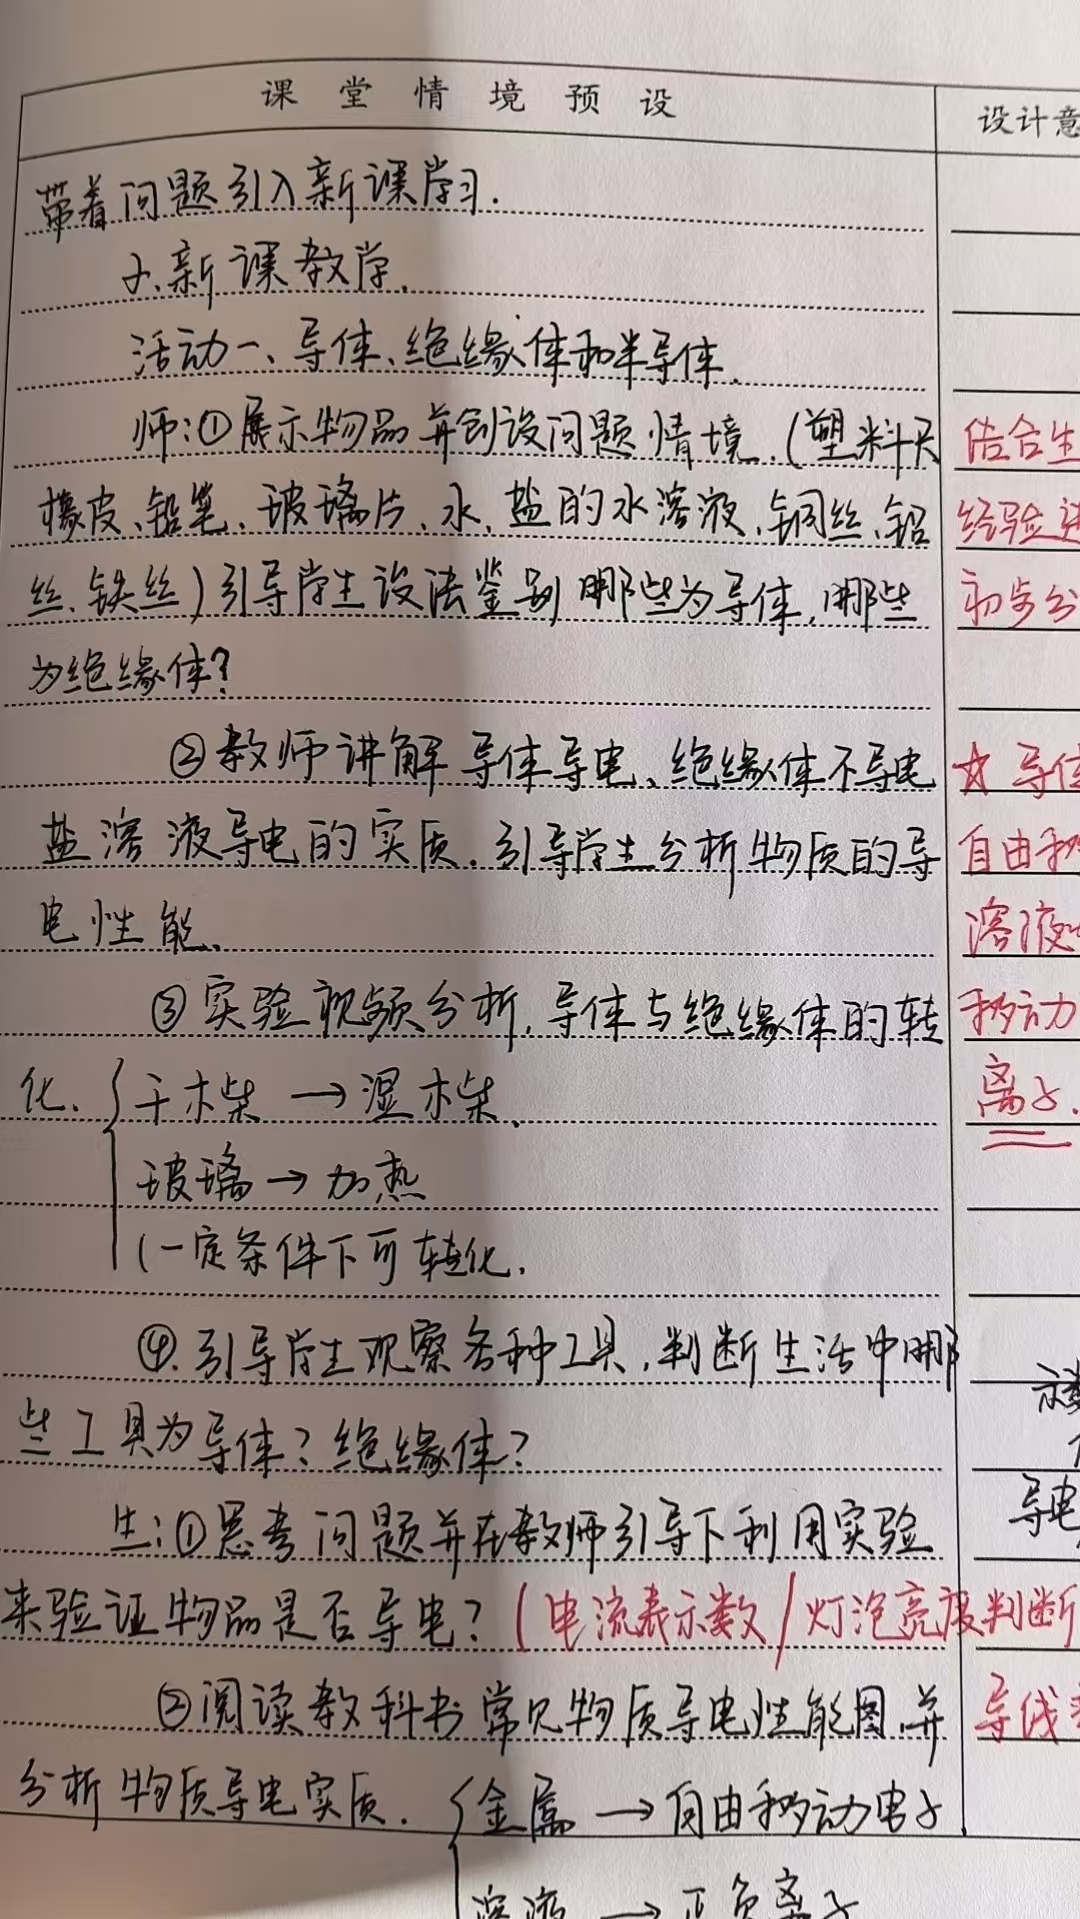 课堂情境预设
设计意
带着问题引入新课学习.
2.新课教学.
活动一、导体、绝缘体和半导体.
师:①展示物品并创设问题情境.(塑料尺
结合生
橡皮、铅笔、玻璃片、水、盐的水溶液、铜丝、铝
经验进
丝、铁丝)引导学生设法鉴别哪些为导体,哪些
初步分
为绝缘体?
②教师讲解导体导电、绝缘体不导电
☆导体
盐溶液导电的实质.引导学生分析物质的导
自由移
电性能.
溶液中
③实验视频分析,导体与绝缘体的转
移动
化. 干木柴→湿木柴、
离子.
玻璃→加热
(一定条件下可转化.
④.引导学生观察各种工具,判断生活中哪
些工具为导体?绝缘体?
导电
生:①思考问题并在教师引导下利用实验
来验证物品是否导电?(电流表示数/灯泡亮度判断
②阅读教科书常见物质导电性能图,并
导线
分析物质导电实质. 金属→自由移动电子
溶液→正负离子